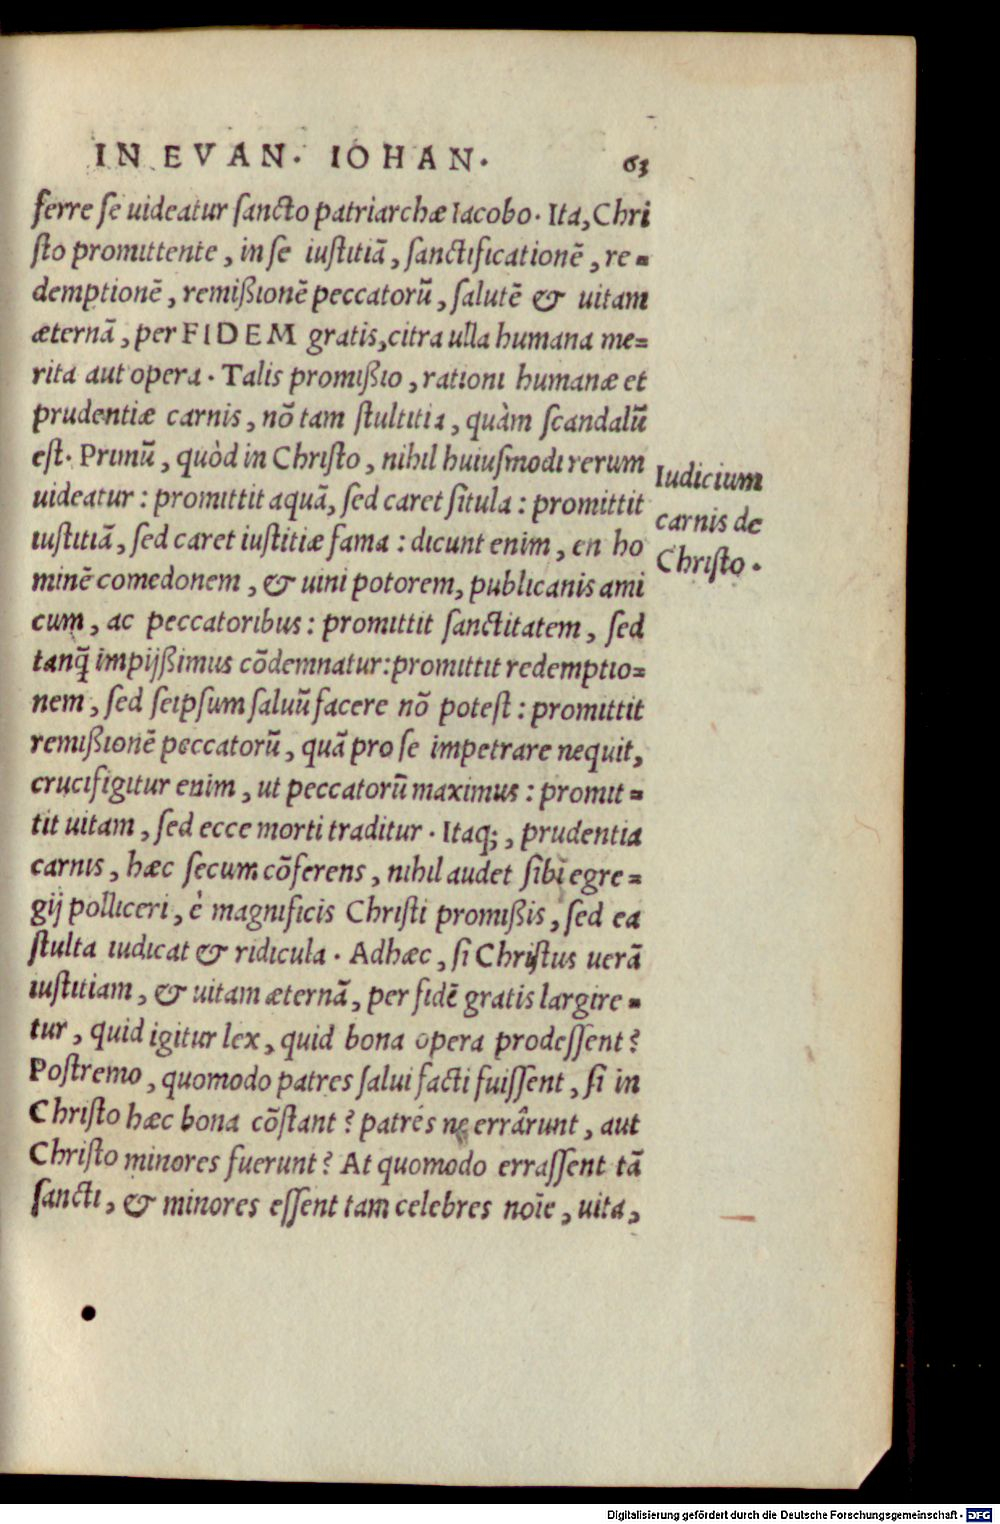 IN EVAN. IOHAN. 63
ferre se uideatur sancto patriarchæ Iacobo. Ita, Chri
sto promittente, in se iustitiā, sanctificationē, re=
demptionē, remißionē peccatorū, salutē & uitam
æternā, per FIDEM gratis, citra ulla humana me=
rita aut opera. Talis promißio, rationi humanæ et
prudentiæ carnis, nō tam stultitia, quàm scandalū
est. Primū, quòd in Christo, nihil huiusmodi rerum
uideatur: promittit aquā, sed caret situla: promittit
iustitiā, sed caret iustitiæ fama: dicunt enim, en ho
minē comedonem, & uini potorem, publicanis ami
cum, ac peccatoribus: promittit sanctitatem, sed
tanq̄ impijßimus cōdemnatur: promittit redemptio=
nem, sed seipsum saluū facere nō potest: promittit
remißionē peccatorū, quā pro se impetrare nequit,
crucifigitur enim, ut peccatorū maximus: promit=
tit uitam, sed ecce morti traditur. Itaq;, prudentia
carnis, hæc secum cōferens, nihil audet sibi egre=
gij polliceri, è magnificis Christi promißis, sed ea
stulta iudicat & ridicula. Adhæc, si Christus uerā
iustitiam, & uitam æternā, per fidē gratis largire=
tur, quid igitur lex, quid bona opera prodessent?
Postremo, quomodo patres salui facti fuissent, si in
Christo hæc bona cōstant? patrés ne errârunt, aut
Christo minores fuerunt? At quomodo errassent tā
sancti, & minores essent tam celebres noīe, uita,
Iudicium
carnis de
Christo.
Digitalisierung gefördert durch die Deutsche Forschungsgemeinschaft - DFG